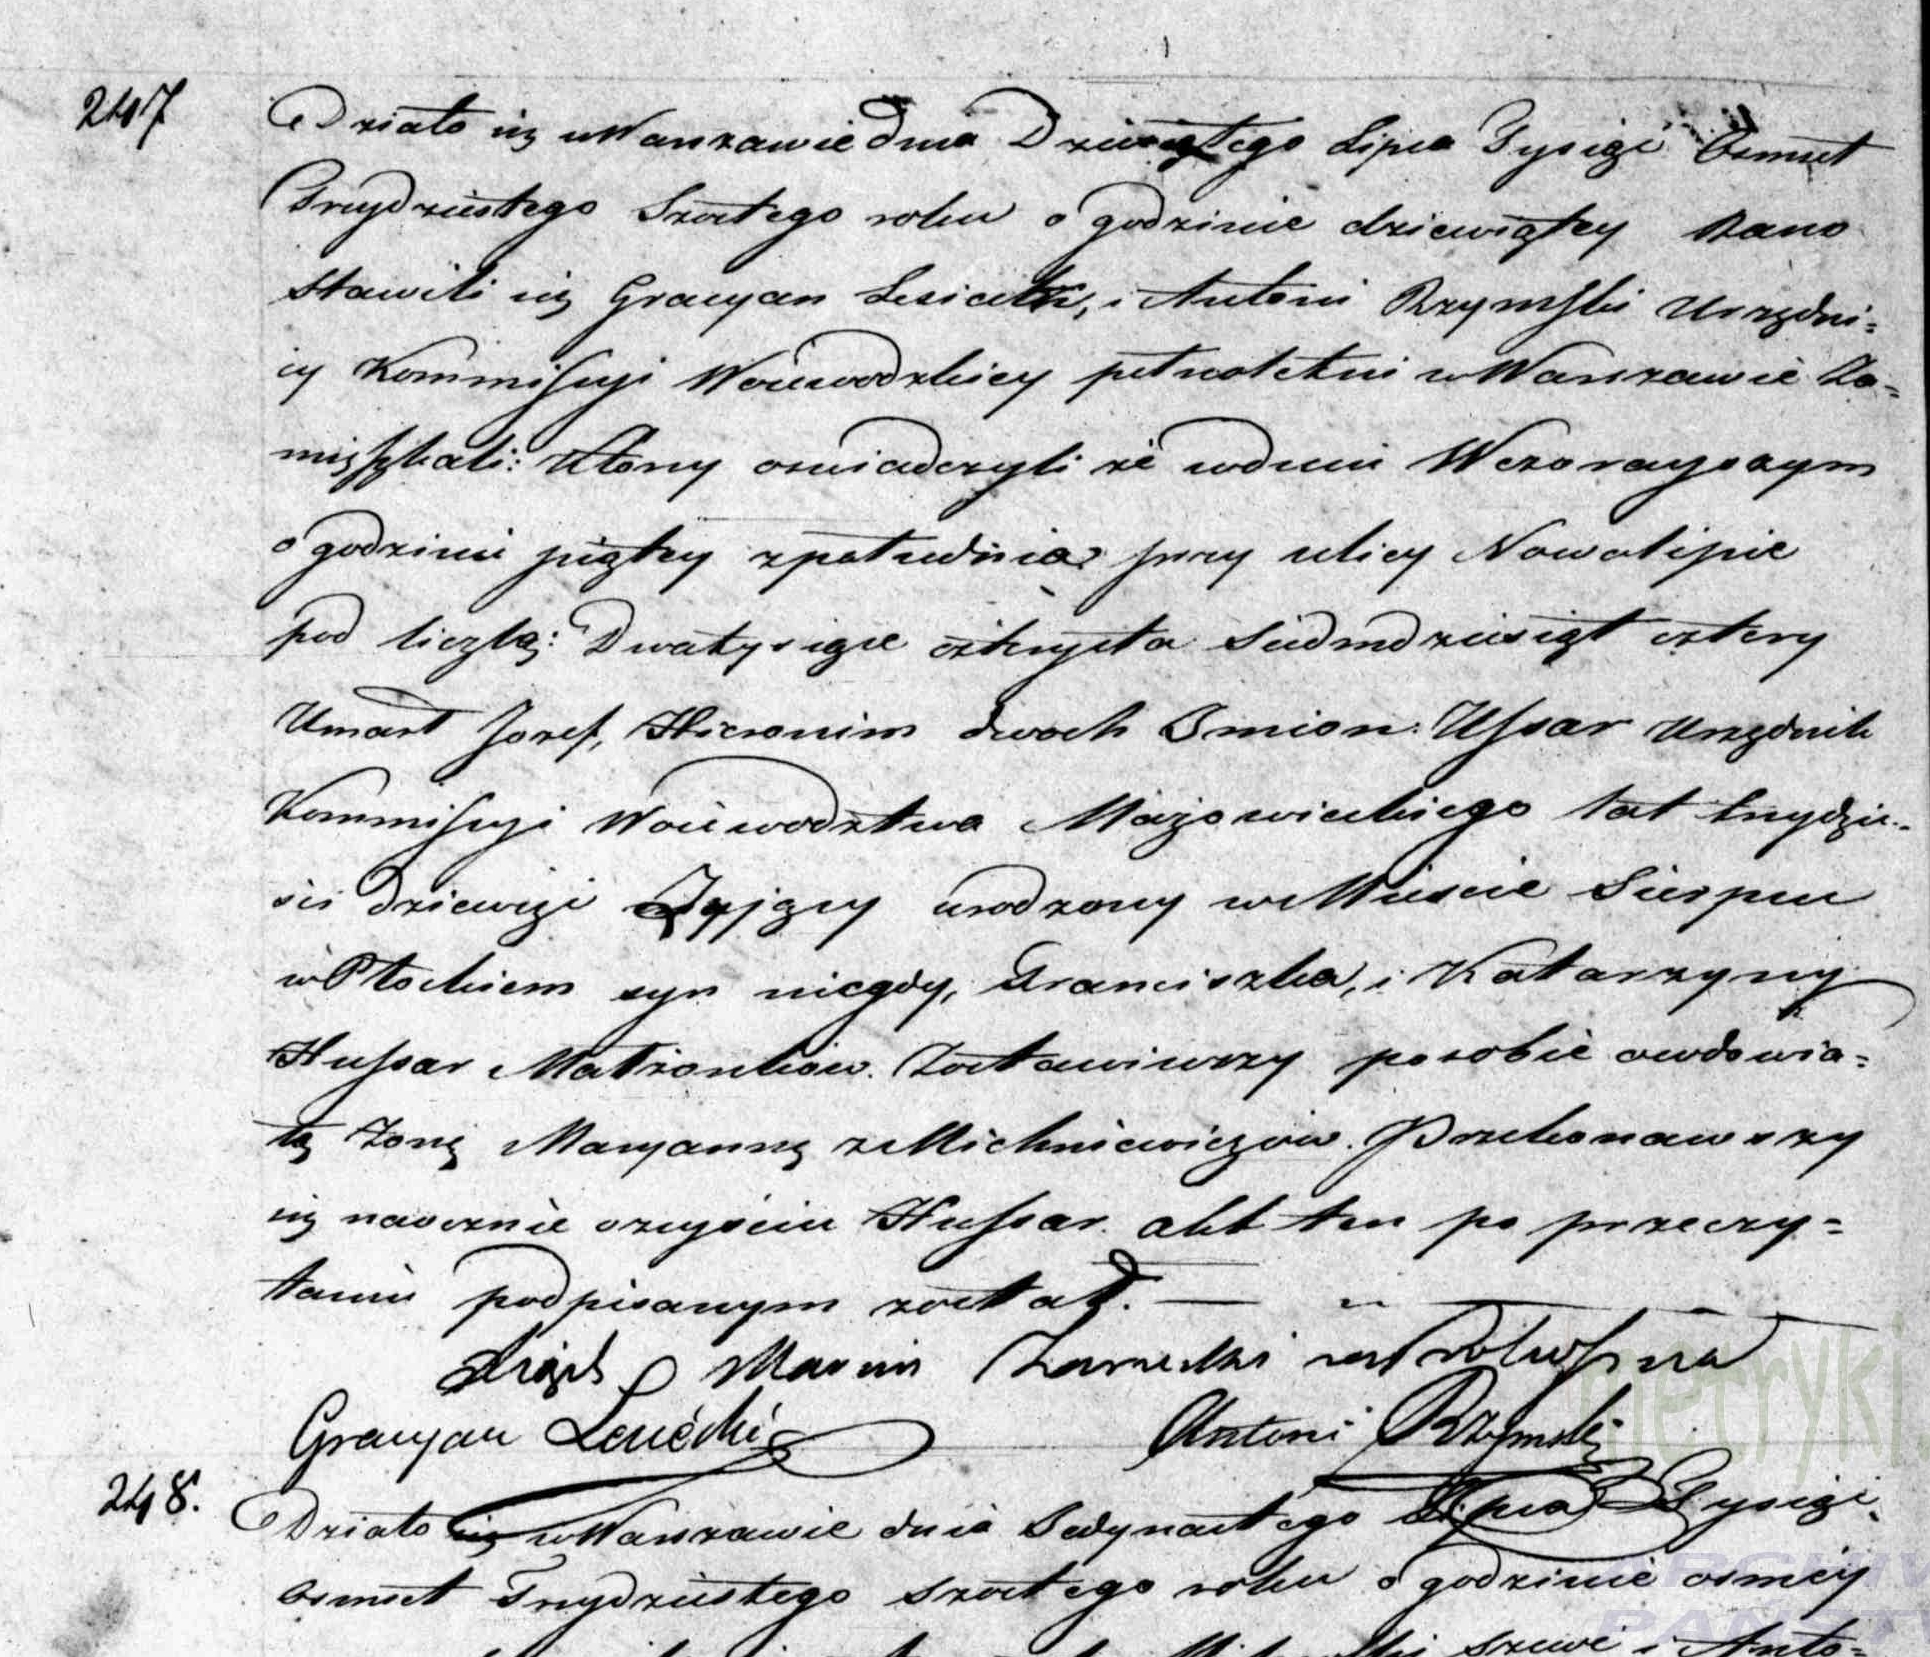 247
Działo się w Warszawie dnia Dziesiątego Lipca Tysiąc Osmset
Trzydziestego Szostego roku o godzinie dziewiątey Rano
Stawili się Gracyan Lesiecki, i Antoni Rzymski Urzędni=
cy Kommissyi Woiewodzkiey pełnoletni w Warszawie Za=
mięszkali: Ktory oswiadczyli że w dniu Wczorayszym
o godzinie piątey z południa przy ulicy Nowolipie
pod liczbą: Dwatysiące czterysta Siedmdziesiąt cztery
Umarł Jozef, Hieronim dwoch Imion: Ussar Urzędnik
Kommissyi Woiewodztwa Mazowieckiego lat trzydzie=
ści dziewięć urodzony w Mieście Sierpcu
w Płockiem syn niegdy, Franciszka, i Katarzyny
Hussar Małżonkow. Zostawiwszy po sobie owdowia=
łą Żonę Maryannę z Michniewiczow. Przekonawszy
się naocznie o zejściu Hussar. akt ten po przeczy=
taniu podpisanym został. —
Marcin
Gracyan Antoni Rzymski
248.
Działo się w Warszawie dnia Jedynastego Lipca Tysiąc
osmset Trzydziestego szostego roku o godzinie osmey
szewc i Anto=
metryki.
ARCHIW
PAŃSTW